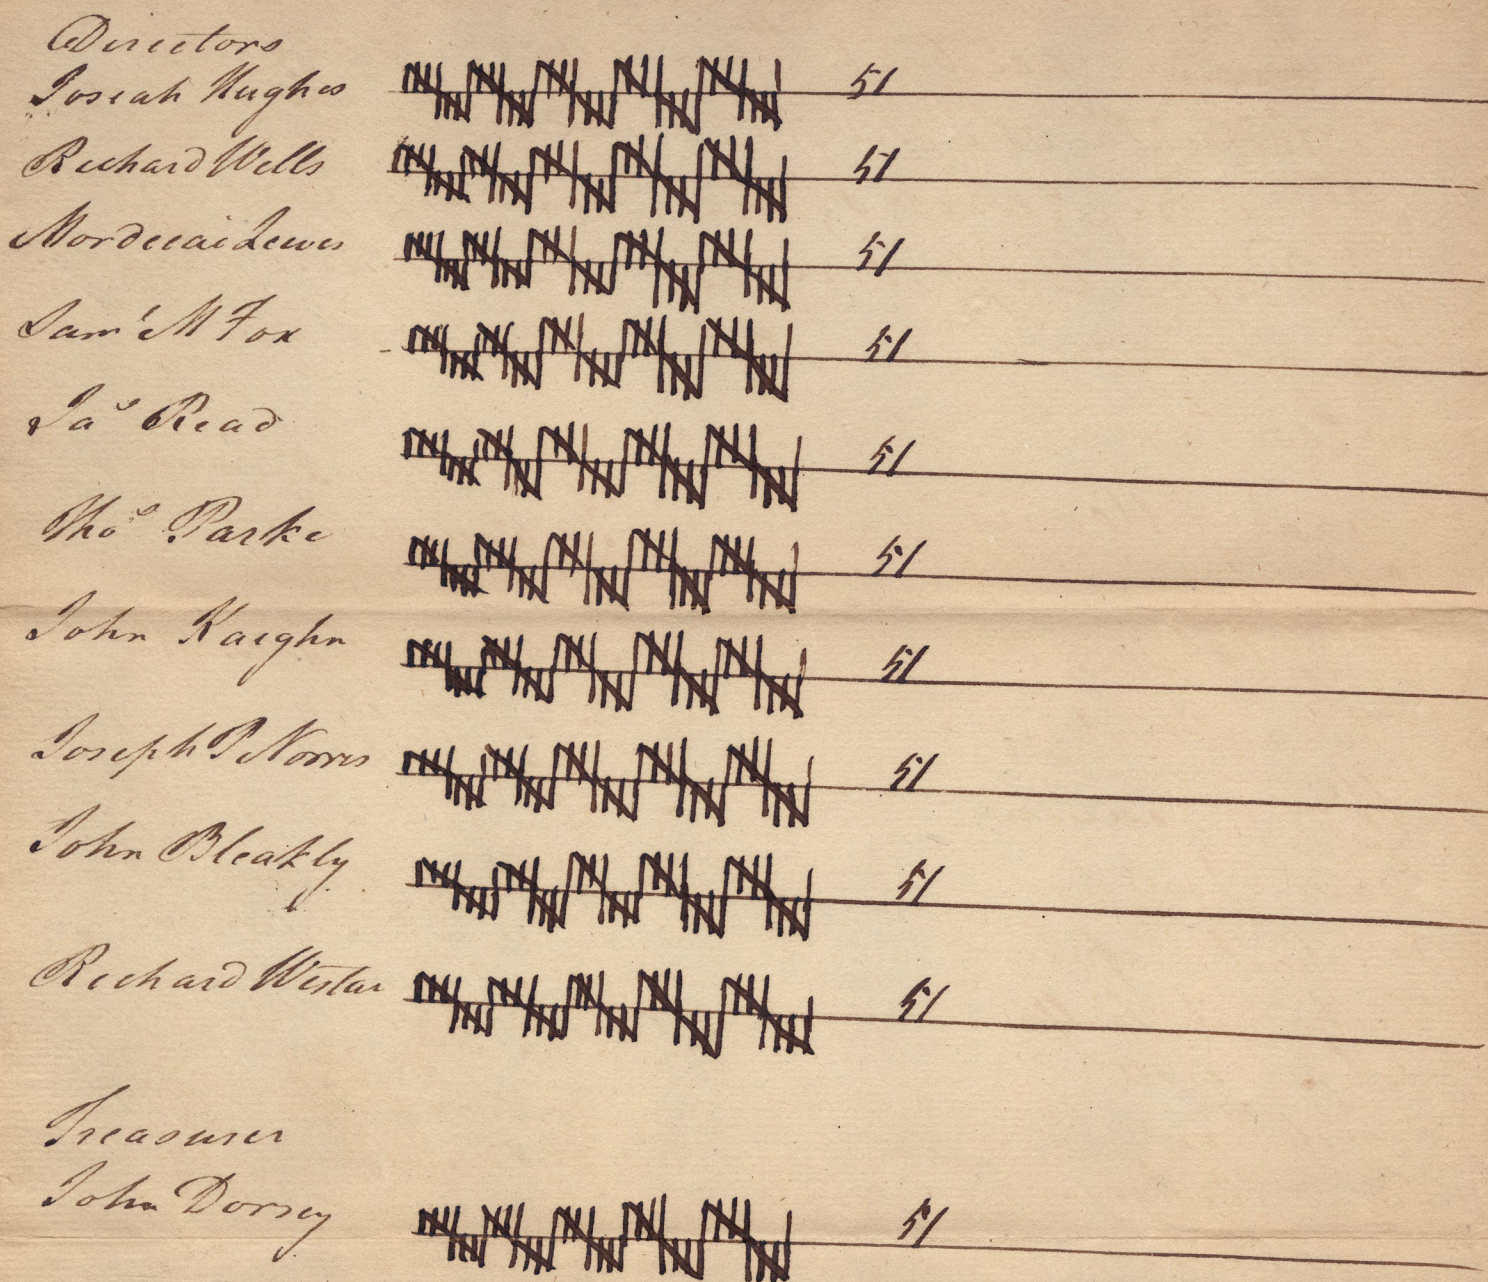 Directors
Josiah Hughes 51
Richard Wells 51
Mordecai Lewis 51
Saml M Fox 51
Jas Read 51
Thos Parke 51
John Kaighn 51
Joseph P Norris 51
John Bleakly 51
Richard Wistar 51
Treasurer
John Dorsey 51